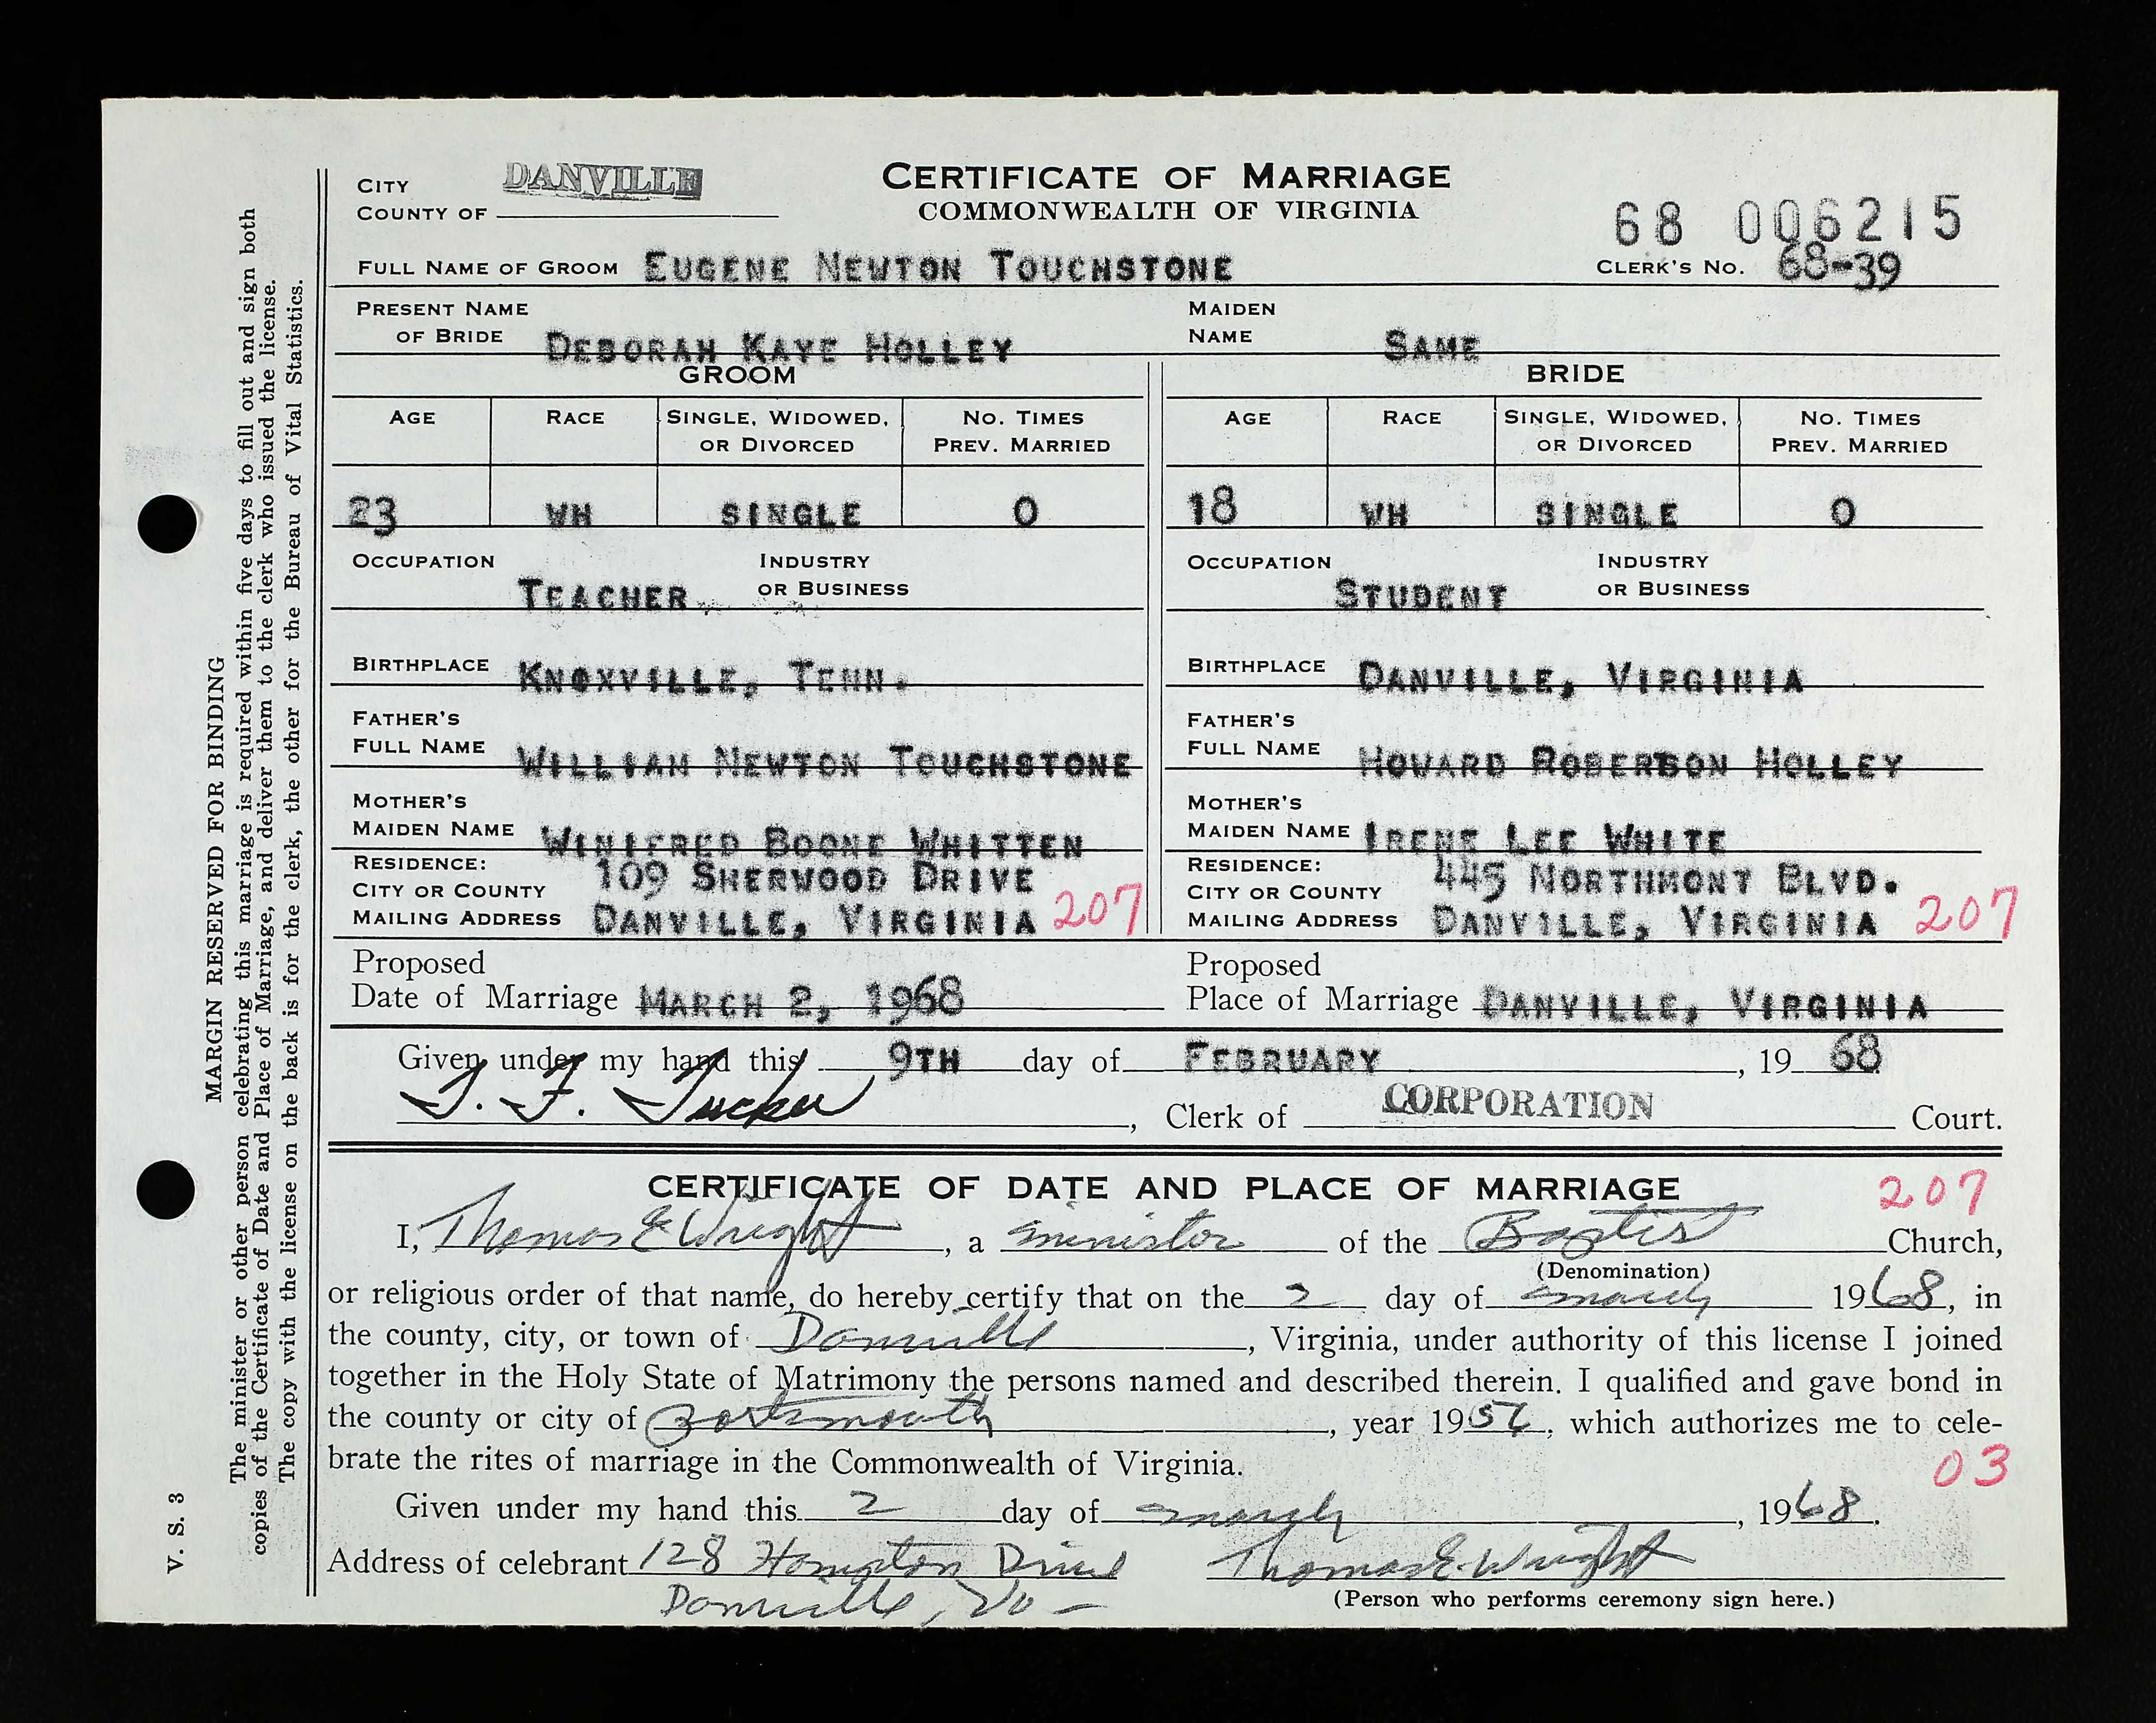 CITY
COUNTY OF DANVILLE
CERTIFICATE OF MARRIAGE
COMMONWEALTH OF VIRGINIA
68 006215
FULL NAME OF GROOM EUGENE NEWTON TOUCHSTONE
CLERK'S NO. 68-39
PRESENT NAME OF BRIDE DEBORAH KAYE HOLLEY
MAIDEN NAME SAME
GROOM
AGE RACE SINGLE, WIDOWED, OR DIVORCED NO. TIMES PREV. MARRIED
23 WH SINGLE 0
OCCUPATION TEACHER INDUSTRY OR BUSINESS
BIRTHPLACE KNOXVILLE, TENN.
FATHER'S FULL NAME WILLIAM NEWTON TOUCHSTONE
MOTHER'S MAIDEN NAME WINIFRED BOONE WHITTEN
RESIDENCE: 109 SHERWOOD DRIVE
CITY OR COUNTY
MAILING ADDRESS DANVILLE, VIRGINIA 207
BRIDE
AGE RACE SINGLE, WIDOWED, OR DIVORCED NO. TIMES PREV. MARRIED
18 WH SINGLE 0
OCCUPATION STUDENT INDUSTRY OR BUSINESS
BIRTHPLACE DANVILLE, VIRGINIA
FATHER'S FULL NAME HOWARD ROBERSON HOLLEY
MOTHER'S MAIDEN NAME IRENE LEE WHITE
RESIDENCE: 445 NORTHMONT BLVD.
CITY OR COUNTY
MAILING ADDRESS DANVILLE, VIRGINIA 207
Proposed Date of Marriage MARCH 2, 1968
Proposed Place of Marriage DANVILLE, VIRGINIA
Given under my hand this 9TH day of FEBRUARY, 19 68
T. F. Tucker, Clerk of CORPORATION Court.
CERTIFICATE OF DATE AND PLACE OF MARRIAGE 207
I, Thomas E Wright, a minister of the Baptist Church,
(Denomination)
or religious order of that name, do hereby certify that on the 2 day of march 1968, in
the county, city, or town of Danville, Virginia, under authority of this license I joined
together in the Holy State of Matrimony the persons named and described therein. I qualified and gave bond in
the county or city of Portsmouth, year 1956, which authorizes me to cele-
brate the rites of marriage in the Commonwealth of Virginia.
03
Given under my hand this 2 day of march, 1968.
Address of celebrant 128 Hampton Drive Thomas E. Wright
Danville, Va - (Person who performs ceremony sign here.)
MARGIN RESERVED FOR BINDING
The minister or other person celebrating this marriage is required within five days to fill out and sign both
copies of the Certificate of Date and Place of Marriage, and deliver them to the clerk who issued the license.
The copy with the license on the back is for the clerk, the other for the Bureau of Vital Statistics.
V. S. 3